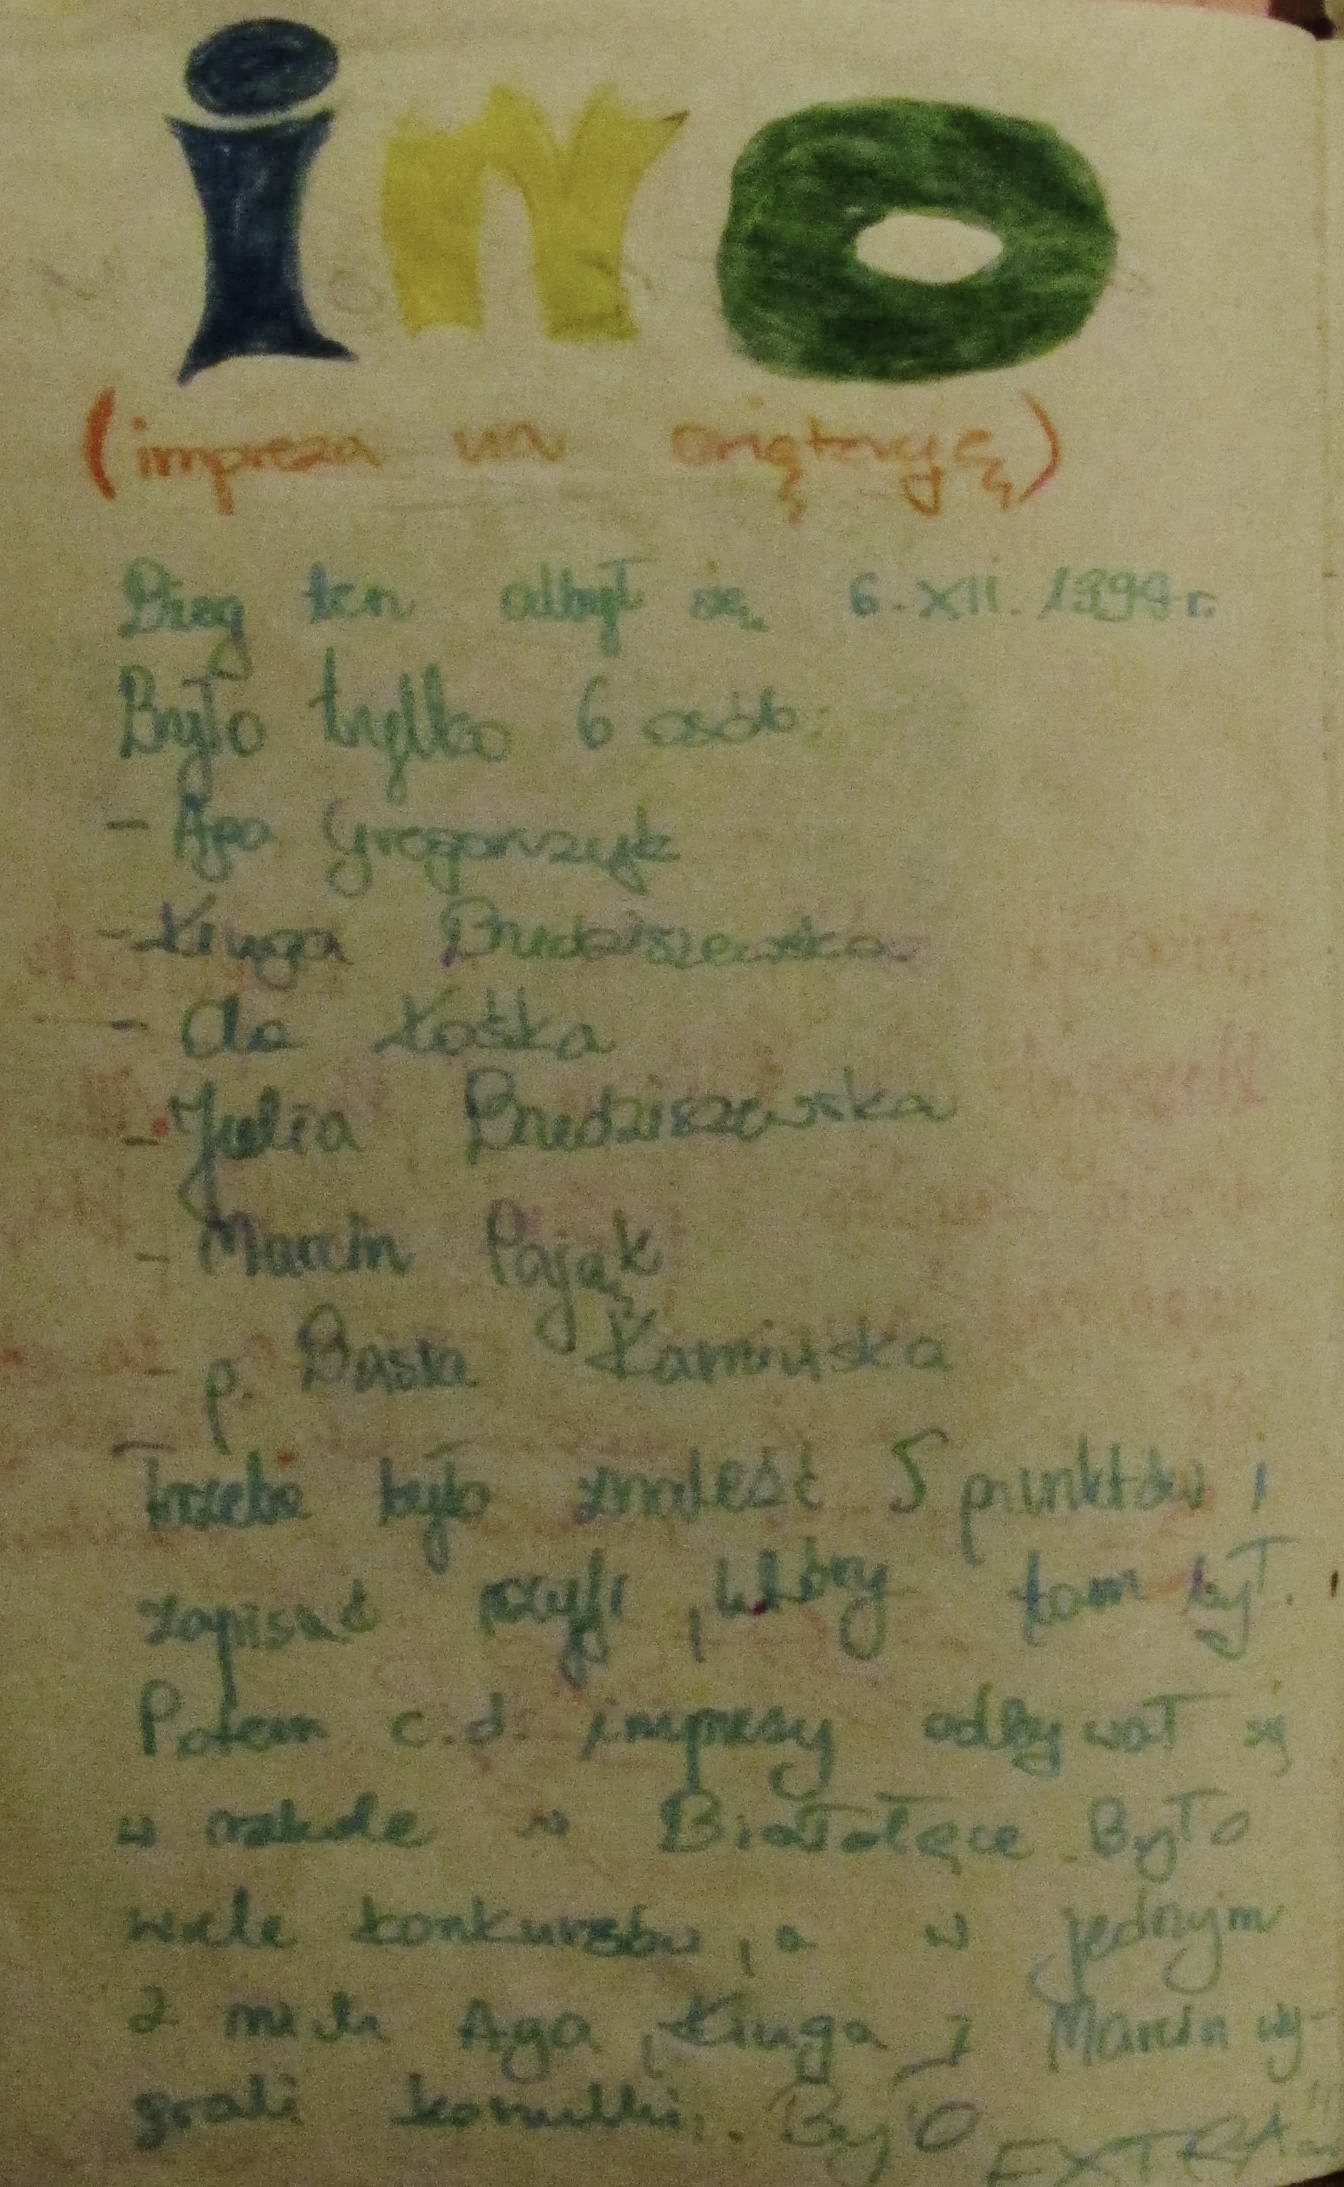 iNO
(impreza na orię
Bieg ten odbył się 6.XII.1998r.
Było tylko 6 osób:
- Aga Gregorczyk
- Kinga Brudziszewska
- Ola Kośka
- Julia Brudziszewska
- Marcin Pająk
- p. Basia Kamińska
Trzeba było znaleść 5 punktów i
zapisać szyfr, który tam był.
Potem c.d. imprezy odbywał się
w szkole w Białołęce. Było
wiele konkursów, a w jednym
z nich Aga, Kinga i Marcin wy-
grali koszulki. Było EXTRA!!!